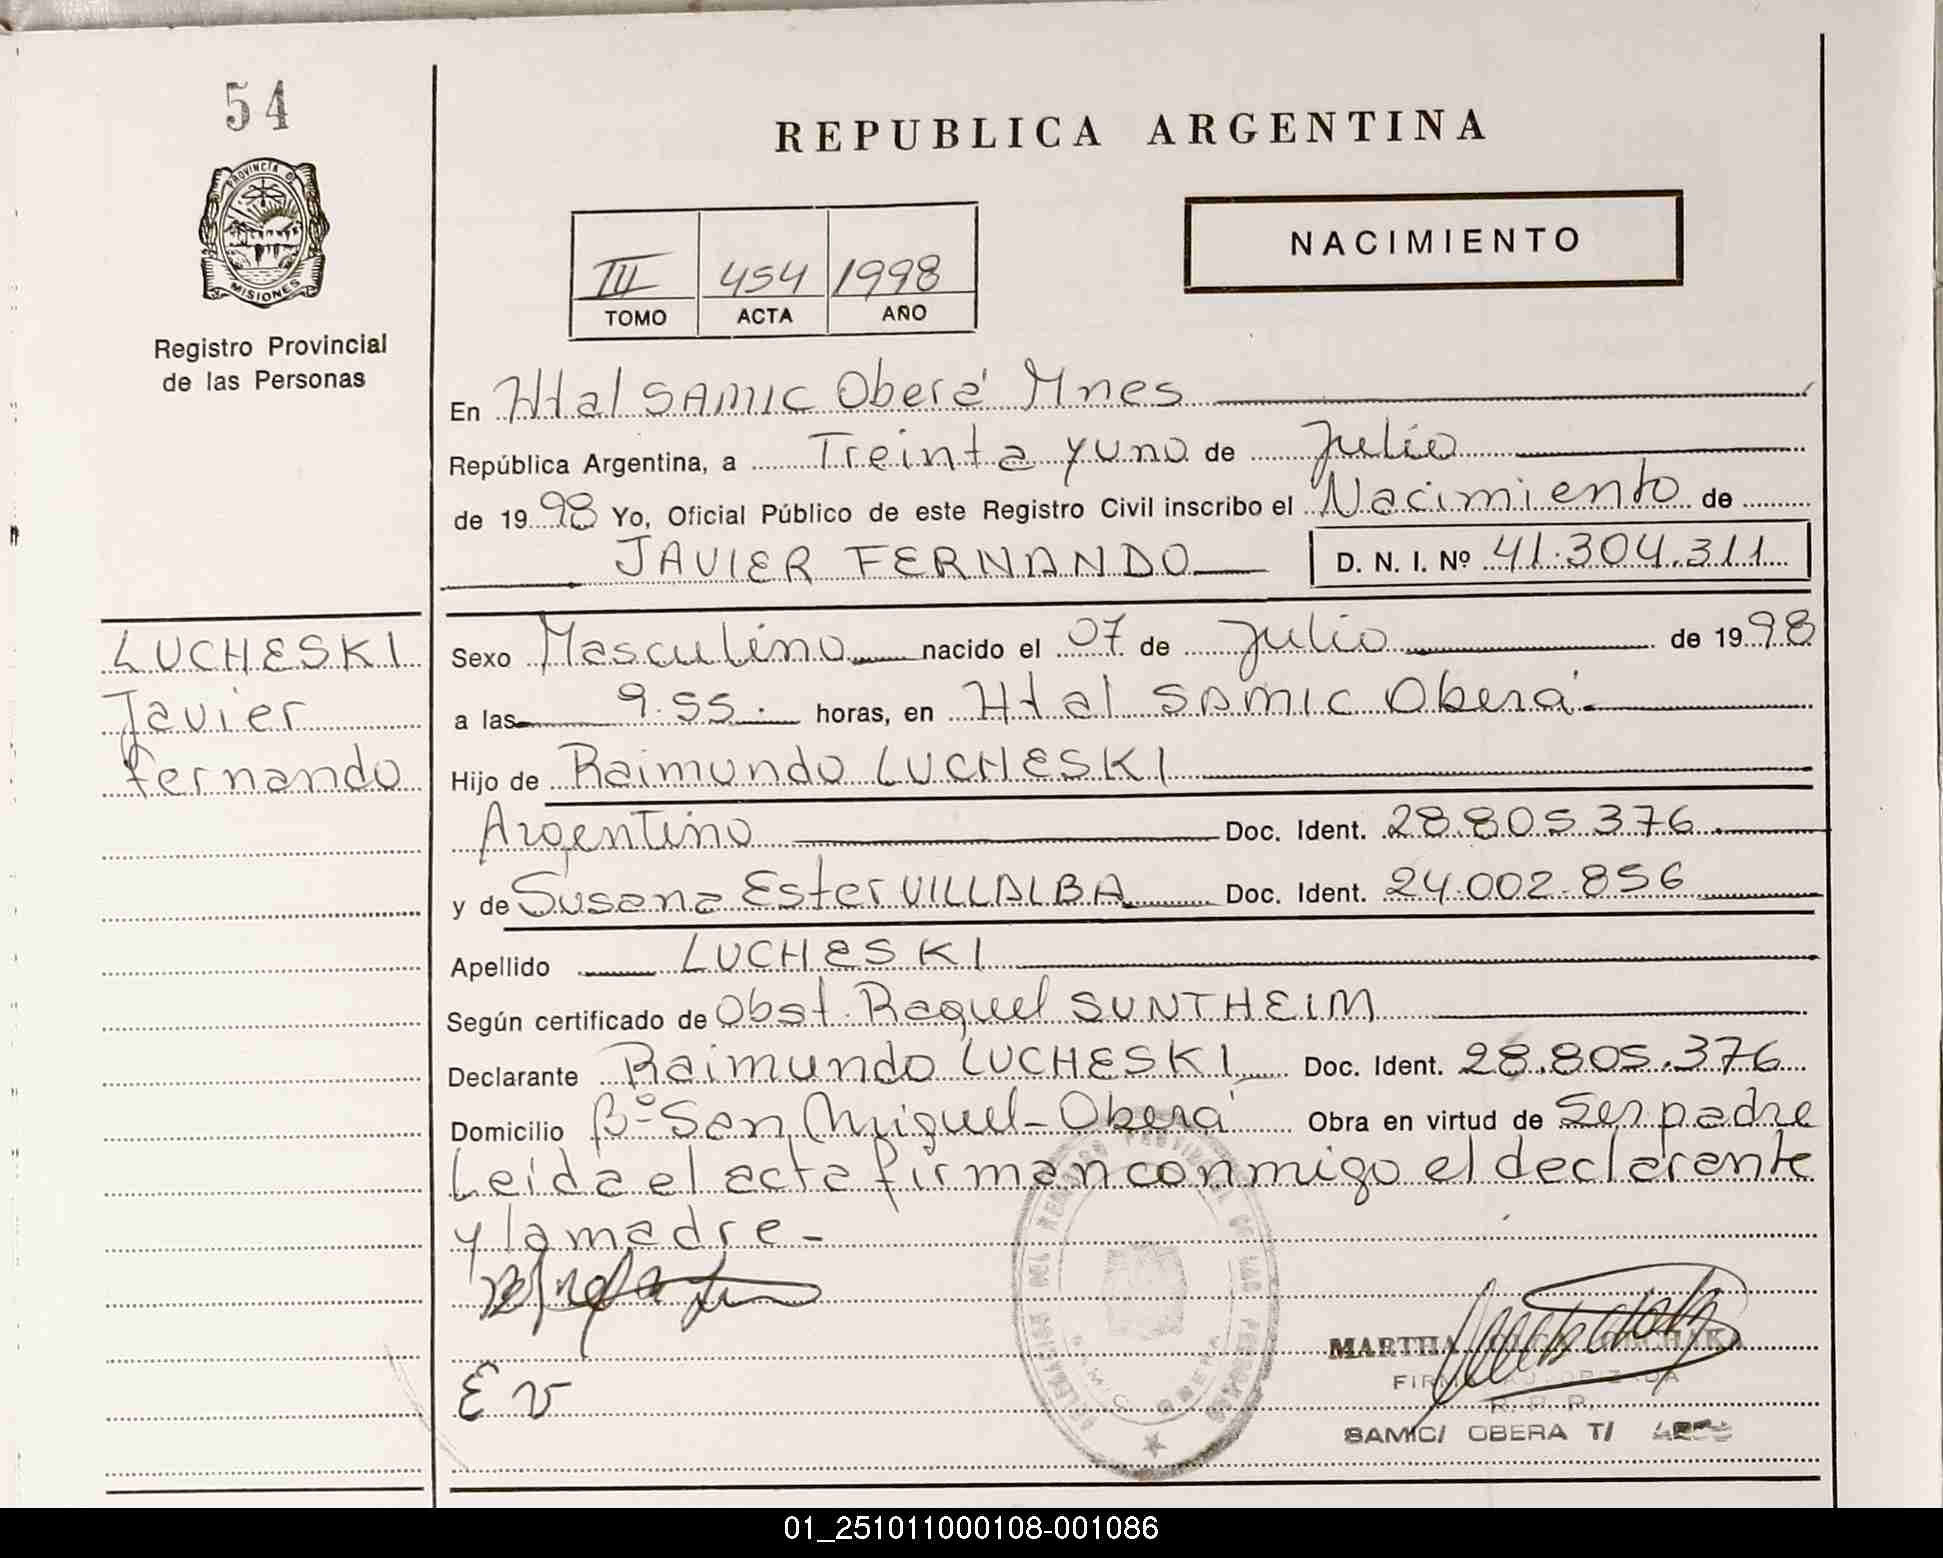 54
PROVINCIA DE
MISIONES
Registro Provincial
de las Personas
REPUBLICA ARGENTINA
NACIMIENTO
III 454 1998
TOMO ACTA AÑO
En Htal SAMIC Oberá Mnes
República Argentina, a Treinta y uno de Julio
de 1998 Yo, Oficial Público de este Registro Civil inscribo el Nacimiento de
JAVIER FERNANDO D. N. I. Nº 41.304.311
LUCHESKI
Javier
Fernando
Sexo Masculino nacido el 07 de Julio de 1998
a las 9.55. horas, en Htal SAMIC Oberá
Hijo de Raimundo LUCHESKI
Argentino Doc. Ident. 28.805376
y de Susana Ester VILLALBA Doc. Ident. 24.002.856
Apellido LUCHESKI
Según certificado de Obst. Raquel SUNTHEIM
Declarante Raimundo LUCHESKI Doc. Ident. 28.805.376
Domicilio Bº San Miguel - Oberá Obra en virtud de Ser padre
Leida el acta firman conmigo el declarante
y la madre -
E v
DELEGACION DEL REGISTRO PROVINCIAL DE LAS PERSONAS
SAMIC OBERA
MARTHA
R. P. P.
SAMIC/ OBERA T/
01_251011000108-001086